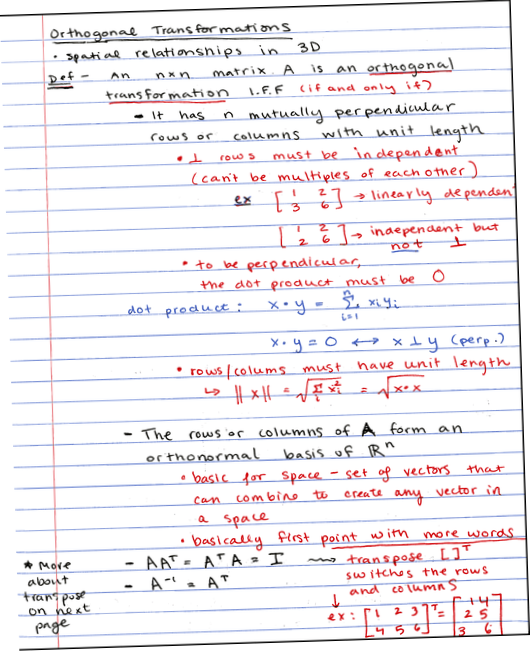 Orthogonal Transformations
• spatial relationships in 3D
Def - An nxn matrix A is an orthogonal
transformation I.F.F (if and only if)
- It has n mutually perpendicular
rows or columns with unit length
• ⊥ rows must be independent
(can't be multiples of each other)
ex [1 2
3 6] → linearly dependent
[1 2
2 6] → independent but
not ⊥
• to be perpendicular,
the dot product must be 0
dot product: x • y = Σⁿᵢ₌₁ xᵢyᵢ
x • y = 0 ↔ x ⊥ y (perp.)
• rows/colums must have unit length
↳ ||x|| = √Σᵢ xᵢ² = √x•x
- The rows or columns of A form an
orthonormal basis of ℝⁿ
• basic for space - set of vectors that
can combine to create any vector in
a space
• basically first point with more words
* More
about
transpose
on next
page
- AAᵀ = AᵀA = I ⇝ transpose [ ]ᵀ
switches the rows
and columns
- A⁻¹ = Aᵀ
↓
ex: [1 2 3
4 5 6]ᵀ = [1 4
2 5
3 6]